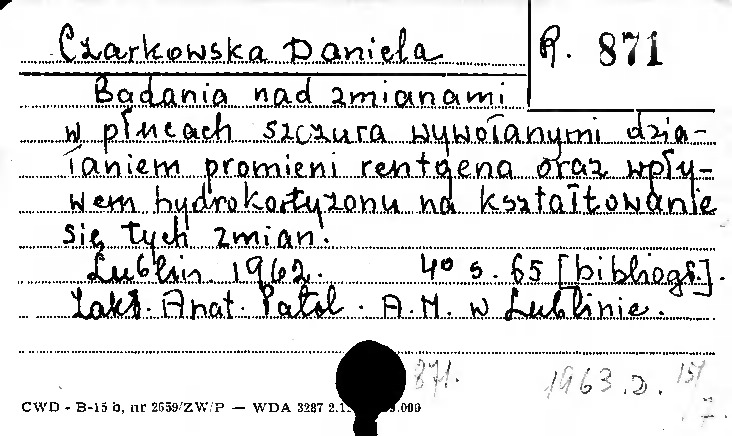 Czarkowska Daniela
R. 871
Badania nad zmianami
w płucach szczura wywołanymi dzia-
łaniem promieni rentgena oraz wpły-
wem hydrokortyzonu na kształtowanie
się tych zmian.
Lublin 1962. 4° s. 65 [bibliogr.].
Zakł. Anat. Patol. A.M. w Lublinie.
871.
1963.D. 151
CWD - B-15 b, nr 2659/ZW/P — WDA 3287